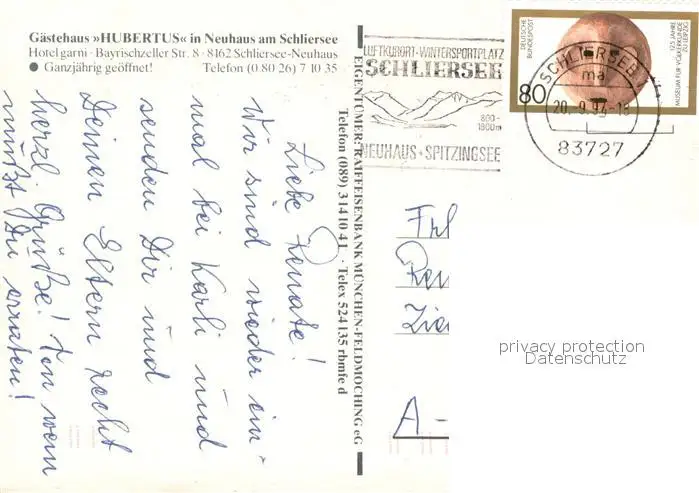 Gästehaus »HUBERTUS« in Neuhaus am Schliersee
Hotel garni · Bayrischzeller Str. 8 · 8162 Schliersee-Neuhaus
● Ganzjährig geöffnet! Telefon (0 80 26) 7 10 35
Liebe Renate!
Wir sind wieder ein-
mal bei Karli und
senden Dir und
Deinen Eltern recht
herzl. Grüße! Von wem
mußt Du erraten!
EIGENTÜMER: RAIFFEISENBANK MÜNCHEN-FELDMOCHING eG
Telefon (089) 3 14 10 41 · Telex 524 135 rbmfe d
LUFTKURORT·WINTERSPORTPLATZ
SCHLIERSEE
800-
1900m
NEUHAUS + SPITZINGSEE
DEUTSCHE
BUNDESPOST
80
125 JAHRE
MUSEUM FÜR VÖLKERKUNDE
ZU LEIPZIG
SCHLIERSEE 1
ma
83727
Frl
Ren
A-
privacy protection
Datenschutz